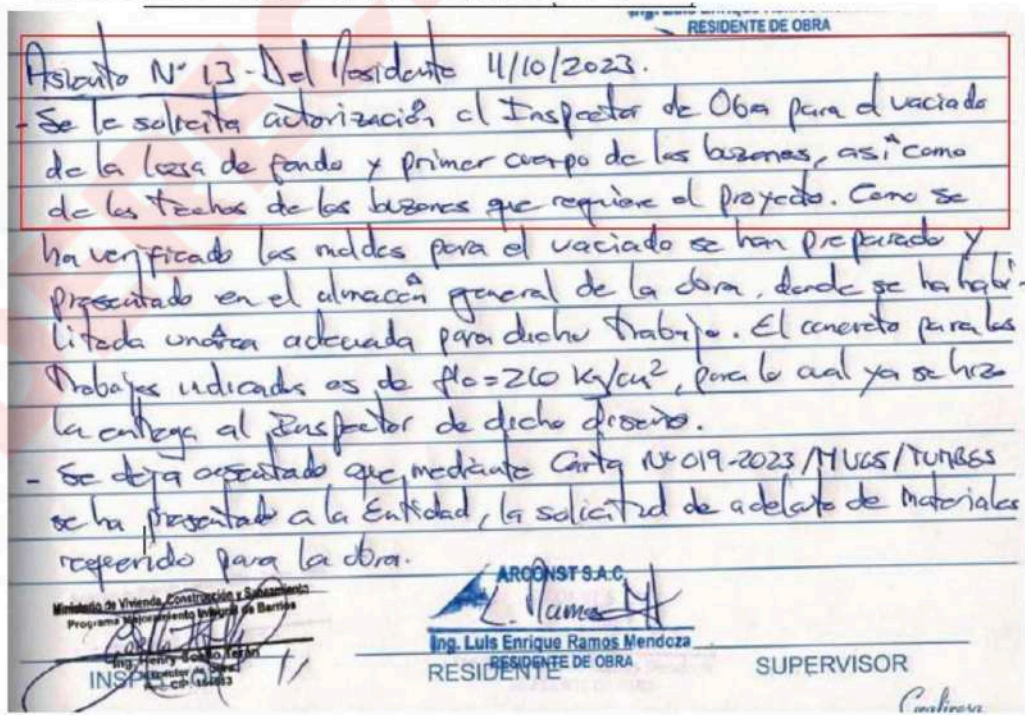 RESIDENTE DE OBRA
Asiento N° 13 - Del Residente 11/10/2023.
- Se le solicita autorización al Inspector de Obra para el vaciado
de la losa de fondo y primer cuerpo de los buzones, así como
de los techos de los buzones que requiere el proyecto. Como se
ha verificado los moldes para el vaciado se han preparado y
presentado en el almacén general de la obra, donde se ha habi-
litado un área adecuada para dicho trabajo. El concreto para los
trabajos indicados es de f'c=210 kg/cm², para lo cual ya se hizo
la entrega al Inspector de dicho diseño.
- Se deja asentado que, mediante Carta N° 019-2023/MUGS/TUMBES
se ha presentado a la Entidad, la solicitud de adelanto de materiales
requerido para la obra.
Ministerio de Vivienda, Construcción y Saneamiento
Programa Mejoramiento Integral de Barrios
ARCONST S.A.C.
Ing. Luis Enrique Ramos Mendoza
RESIDENTE DE OBRA
Ing. Henry
Inspector de Obra
INSP
RESIDENTE
SUPERVISOR